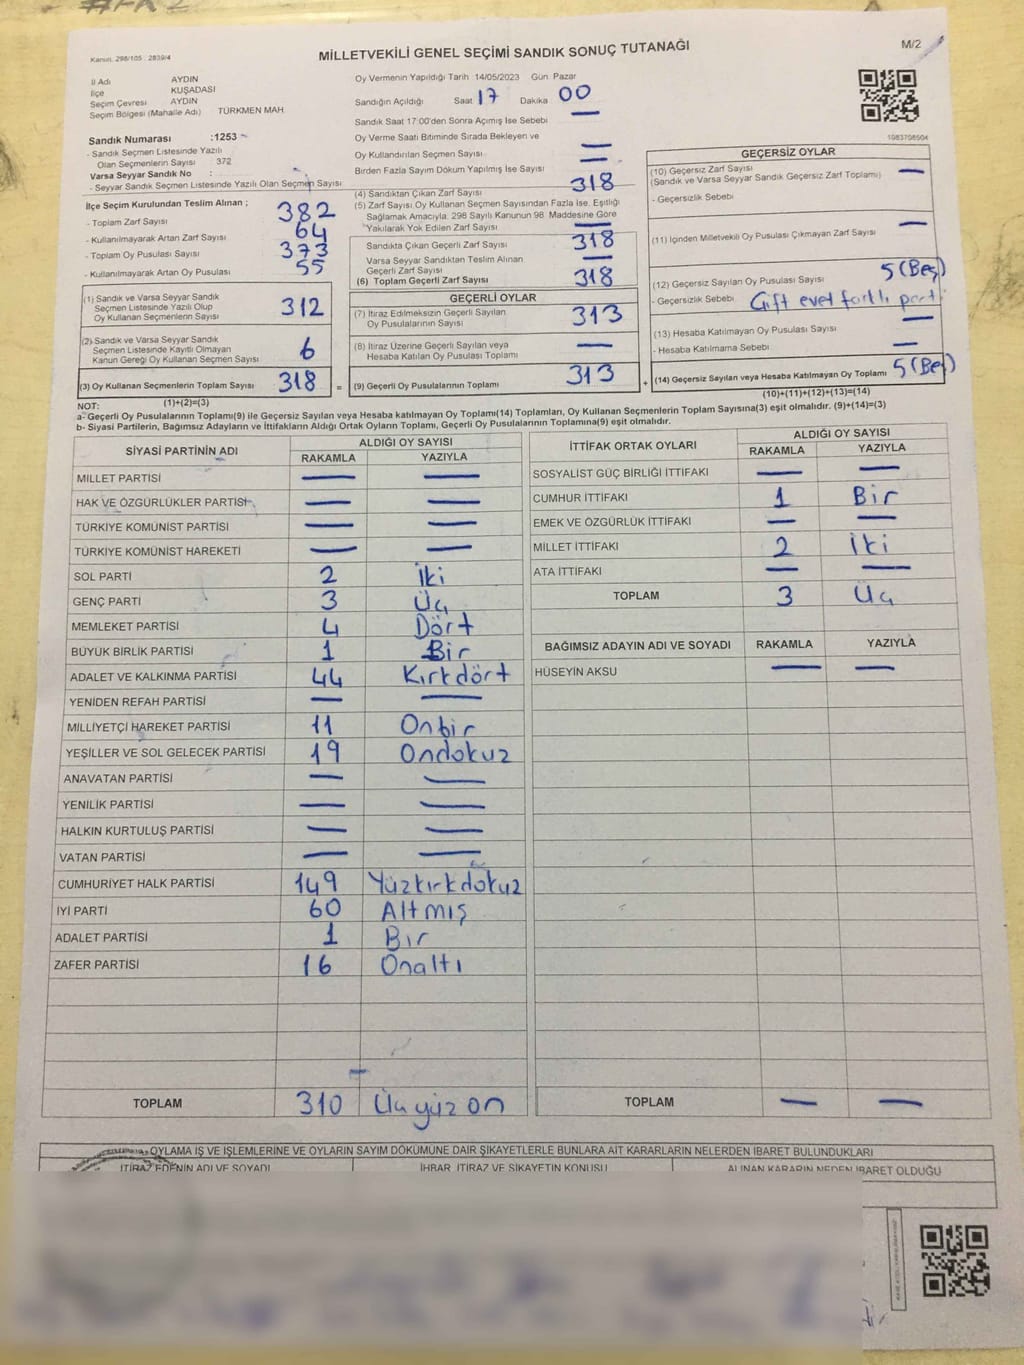 MİLLETVEKİLİ GENEL SEÇİMİ SANDIK SONUÇ TUTANAĞI
M/2
Kanun: 298/105 : 2839/4
İl Adı AYDIN
İlçe KUŞADASI
Seçim Çevresi AYDIN
Seçim Bölgesi (Mahalle Adı) TÜRKMEN MAH.
Sandık Numarası :1253
- Sandık Seçmen Listesinde Yazılı
Olan Seçmenlerin Sayısı 372
Varsa Seyyar Sandık No :
- Seyyar Sandık Seçmen Listesinde Yazılı Olan Seçmen Sayısı
İlçe Seçim Kurulundan Teslim Alınan ;
- Toplam Zarf Sayısı 382
- Kullanılmayarak Artan Zarf Sayısı 64
- Toplam Oy Pusulası Sayısı 373
- Kullanılmayarak Artan Oy Pusulası 55
(1) Sandık ve Varsa Seyyar Sandık
Seçmen Listesinde Yazılı Olup
Oy Kullanan Seçmenlerin Sayısı 312
(2) Sandık ve Varsa Seyyar Sandık
Seçmen Listesinde Kayıtlı Olmayan
Kanun Gereği Oy Kullanan Seçmen Sayısı 6
(3) Oy Kullanan Seçmenlerin Toplam Sayısı 318 =
(1)+(2)=(3)
Oy Vermenin Yapıldığı Tarih 14/05/2023 Gün Pazar
Sandığın Açıldığı Saat 17 Dakika 00
Sandık Saat 17:00'den Sonra Açımış İse Sebebi —
Oy Verme Saati Bitiminde Sırada Bekleyen ve
Oy Kullandırılan Seçmen Sayısı —
Birden Fazla Sayım Döküm Yapılmış İse Sayısı —
(4) Sandıktan Çıkan Zarf Sayısı 318
(5) Zarf Sayısı Oy Kullanan Seçmen Sayısından Fazla İse, Eşitliği
Sağlamak Amacıyla, 298 Sayılı Kanunun 98. Maddesine Göre
Yakılarak Yok Edilen Zarf Sayısı —
Sandıkta Çıkan Geçerli Zarf Sayısı 318
Varsa Seyyar Sandıktan Teslim Alınan
Geçerli Zarf Sayısı —
(6) Toplam Geçerli Zarf Sayısı 318
GEÇERLİ OYLAR
(7) İtiraz Edilmeksizin Geçerli Sayılan
Oy Pusulalarının Sayısı 313
(8) İtiraz Üzerine Geçerli Sayılan veya
Hesaba Katılan Oy Pusulası Toplamı —
(9) Geçerli Oy Pusulalarının Toplamı 313 +
1083708504
GEÇERSİZ OYLAR
(10) Geçersiz Zarf Sayısı —
(Sandık ve Varsa Seyyar Sandık Geçersiz Zarf Toplamı)
- Geçersizlik Sebebi
(11) İçinden Milletvekili Oy Pusulası Çıkmayan Zarf Sayısı —
(12) Geçersiz Sayılan Oy Pusulası Sayısı 5 (Beş)
- Geçersizlik Sebebi Çift evet farklı parti
(13) Hesaba Katılmayan Oy Pusulası Sayısı —
- Hesaba Katılmama Sebebi —
(14) Geçersiz Sayılan veya Hesaba Katılmayan Oy Toplamı 5 (Beş)
(10)+(11)+(12)+(13)=(14)
NOT:
a- Geçerli Oy Pusulalarının Toplamı(9) ile Geçersiz Sayılan veya Hesaba katılmayan Oy Toplamı(14) Toplamları, Oy Kullanan Seçmenlerin Toplam Sayısına(3) eşit olmalıdır. (9)+(14)=(3)
b- Siyasi Partilerin, Bağımsız Adayların ve İttifakların Aldığı Ortak Oyların Toplamı, Geçerli Oy Pusulalarının Toplamına(9) eşit olmalıdır.
SİYASİ PARTİNİN ADI ALDIĞI OY SAYISI
RAKAMLA YAZIYLA
MİLLET PARTİSİ — —
HAK VE ÖZGÜRLÜKLER PARTİSİ — —
TÜRKİYE KOMÜNİST PARTİSİ — —
TÜRKİYE KOMÜNİST HAREKETİ — —
SOL PARTİ 2 İki
GENÇ PARTİ 3 Üç
MEMLEKET PARTİSİ 4 Dört
BÜYÜK BİRLİK PARTİSİ 1 Bir
ADALET VE KALKINMA PARTİSİ 44 Kırkdört
YENİDEN REFAH PARTİSİ — —
MİLLİYETÇİ HAREKET PARTİSİ 11 Onbir
YEŞİLLER VE SOL GELECEK PARTİSİ 19 Ondokuz
ANAVATAN PARTİSİ — —
YENİLİK PARTİSİ — —
HALKIN KURTULUŞ PARTİSİ — —
VATAN PARTİSİ — —
CUMHURİYET HALK PARTİSİ 149 Yüzkırkdokuz
İYİ PARTİ 60 Altmış
ADALET PARTİSİ 1 Bir
ZAFER PARTİSİ 16 Onaltı
TOPLAM 310 Üçyüz on
İTTİFAK ORTAK OYLARI ALDIĞI OY SAYISI
RAKAMLA YAZIYLA
SOSYALİST GÜÇ BİRLİĞİ İTTİFAKI — —
CUMHUR İTTİFAKI 1 Bir
EMEK VE ÖZGÜRLÜK İTTİFAKI — —
MİLLET İTTİFAKI 2 İki
ATA İTTİFAKI — —
TOPLAM 3 Üç
BAĞIMSIZ ADAYIN ADI VE SOYADI RAKAMLA YAZIYLA
HÜSEYİN AKSU — —
TOPLAM — —
OYLAMA İŞ VE İŞLEMLERİNE VE OYLARIN SAYIM DÖKÜMÜNE DAİR ŞİKAYETLERLE BUNLARA AİT KARARLARIN NELERDEN İBARET BULUNDUKLARI
İTİRAZ EDENİN ADI VE SOYADI İHBAR, İTİRAZ VE ŞİKAYETİN KONUSU ALINAN KARARIN NEDEN İBARET OLDUĞU